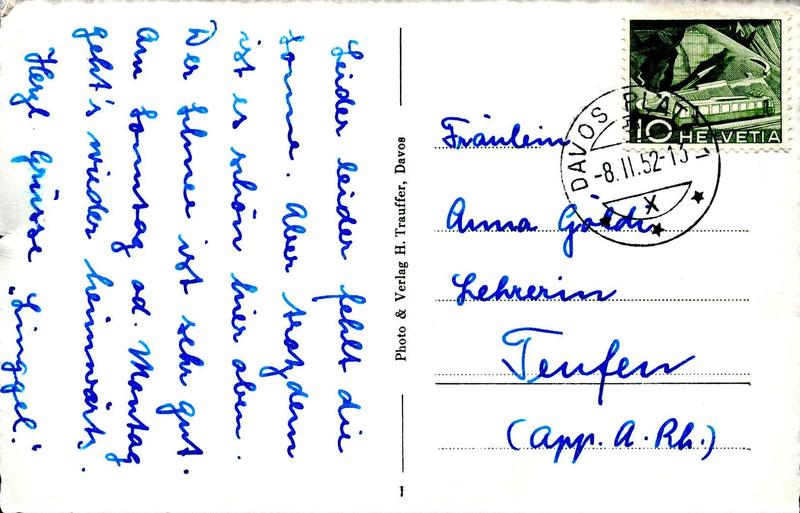 Leider leider fehlt die
Sonne. Aber trotzdem
ist es schön hier oben.
Der Schnee ist sehr gut.
Am Sonntag od. Montag
geht's wieder heimwärts.
Herzl. Grüsse „Linggel".
Photo & Verlag H. Trauffer, Davos
I
10 HELVETIA
DAVOS PLATZ 1
-8.II.52-13
X
Fräulein
Anna Göldi
Lehrerin
Teufen
(App. A. Rh.)